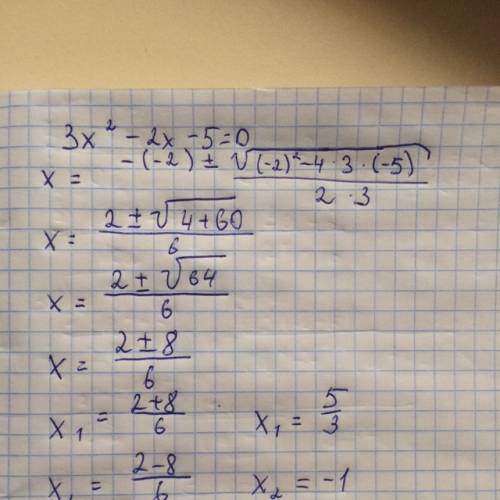 3x² - 2x - 5 = 0
x = (-(-2) ± √((-2)² - 4 · 3 · (-5))) / (2 · 3)
x = (2 ± √(4 + 60)) / 6
x = (2 ± √64) / 6
x = (2 ± 8) / 6
x₁ = (2+8) / 6    x₁ = 5/3
x₂ = (2-8) / 6    x₂ = -1